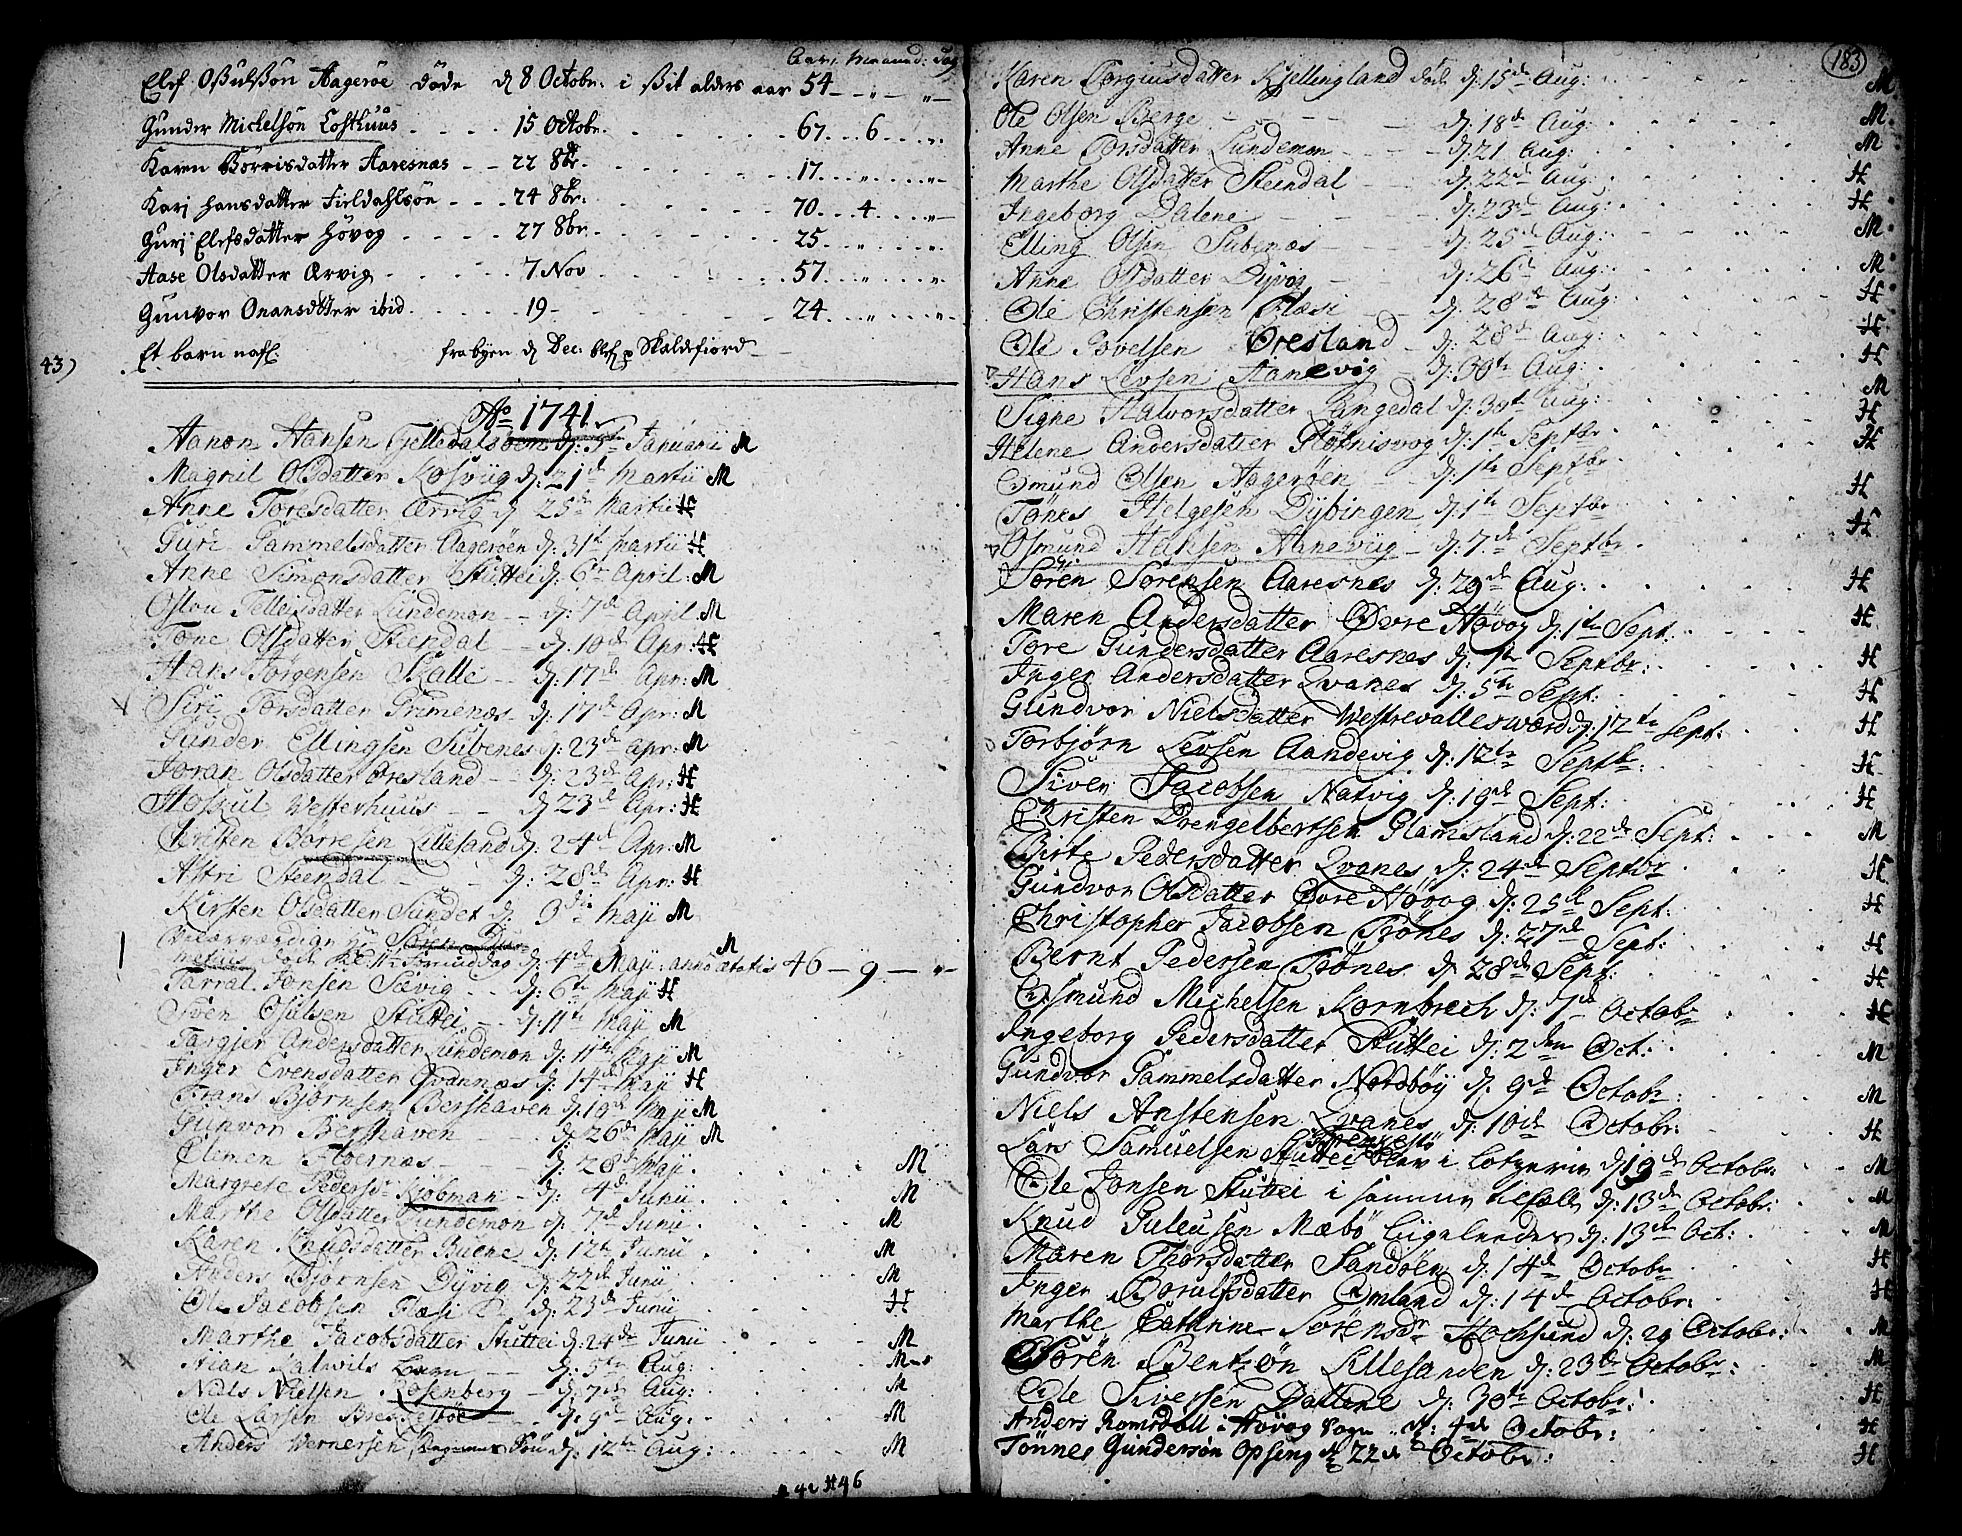 Aar: Maaned: Dag
Elef Oßulßön Aagerøe døde d 8 Octobr: i sit alders aar 54 - „ - „
Gunder Michelsön Losthuus 15 Octobr. 67 6 „
Karen Börrisdatter Aaresnæs 22 8br. 17 „ „
Karj Hansdatter Fieldahlsøe 24 8br. 70 4 „
Gurj Elefsdatter Høvog 27 8br. 25 „ „
Aase Olsdatter Ærvig 7 Nov 57 „ „
Gunvor Onansdatter ibid. 19 - 24 „ „
Et barn fra byen d Dec: Skaldefiord
43)
Ao 1741.
Aanon Hansen Tjelledalsöen d: 5te Januarii M
Magnil Olsdatter Kosviig d: 21d Martii M
Anne Toresdatter Ærvig d 25de Martii H
Guri Gammelsdatter Aagerøen d: 31t Martii H
Anne Simonsdatter Stuttei d: 6te April: M
Oslou Tellefsdatter Lundemon d: 7de April M
Tone Olsdatter Steendal d: 10de Apr: H
Hans Jörgensen Skalle d: 17de Apr: M
Siri Torsdatter Grimenæs d: 17de Apr: M
Gunder Ellingsen Subenes d: 23de Apr: M
Joran Olsdatter Øresland d: 23de Apr: H
Hoskul Vesterhuus d 23d Apr: H
Christen Børresen Lillesand d: 24d Apr: M
Astri Steendal d: 28de Apr: H
Kirsten Olsdatter Sundet d: Maji M
Velærværdige Hr M
d: 4de Maji: anno ætatis 46 - 9 - „
Tarral Jonsen Sævig d: 6te Maji H
Sven Osulsen Stuttei d: 11te Maji M
Targjer Andersdatter Lundemon d: 11te Maji M
Inger Evensdatter Qvannæs d: 14de Maji H
Frans Bjørnsen Bershaven d: 19de Maji M
Gunvor Bershaven d: 26de Maji M
Clemen d: 28de Maji. M
Margrete Pedersdr Kiøbman d: 4de Junii M
Marthe Olsdatter Lundemon d: 7de Junii M
Karen Knudsdatter Buene d: 12te Junii M
Anders Bjørnsen Dÿvig d: 22de Junii M
Ole Jacobsen Flæsi d: 23de Junii H
Marthe Jacobsdatter Stuttei d: 24de Junii M
barn d: 5te Aug: M
Niels Nielsen Rosenberg d: 7de Aug: M
Ole Larsen Brekkestøe d: 9de Aug: M
Anders Wernersen d: 12te Aug: M
M 42 H 46
183
Karen Torgiusdatter Kjellingland død d: 15de Aug: M
Ole Olsen Berge d: 18de Aug: M
Anne Torsdatter Lundemon d: 21 Aug: M
Marthe Olsdatter Steindal d: 22de Aug: H
Ingeborg Dalene d: 23de Aug: H
Elling Olsen Subenæs d: 25de Aug: M
Anne Olsdatter Dÿvog d: 26de Aug: M
Ole Christensen Flæsi d: 28de Aug: H
Ole Povelsen Øresland d: 28de Aug: H
Hans Levsen Aanevig d: 30te Aug: H
Signe Halvorsdatter Langedal d: 30te Aug: M
Helene Andersdatter Gløbnisvog d: 1te Septbr H
Osmund Olsen Aagerøen d: 1te Septbr H
Tønes Helgesen Dybingen d: 1te Septbr H
Osmund Hansen Aaneviig d: 7de Septbr H
Sören Sørensen Aaresnes d: 29de Aug: H
Maren Andersdatter Øvre Høvog d: 1te Sept: H
Tore Gundersdatter Aaresnes d: 1te Septbr: H
Inger Andersdatter Qvanes d: 5te Sept: H
Gundvor Nielsdatter Westrevallesværd d: 12te Sept: H
Torbjørn Levsen Aandevig d: 12te Septbr: H
Siver Jacobsen Natvig d: 19de Sept: H
Christen Drengelbertsen Glamsland d: 22de Sept: M
Birte Pedersdatter Qvanes d: 24de Septbr H
Gundvor Olsdatter Øvre Høvog d: 25de Sept: H
Christopher Jacobsen Trönes d: 27de Sept: H
Bernt Pedersen Trönes d 28de Sept: H
Osmund Michelsen Kornbrech d: 7de Octobr H
Ingeborg Pedersdatter Stuttei d: 2den Oct: M
Gundvor Gammelsdatter Nordbøÿ d: 9de Octobr: M
Niels Anstensen Qvanes d: 10de Octobr: H
Brekkestö
Lars Samuelsen Stuttei blev i Lotzerie d: 13de Octobr: M
Ole Jonsen Stuttei i samme tilfælde d: 13de Octobr: M
Knud Guleusen Mæbö ligeledes d: 13de Oct: M
Maren Thorsdatter Sandöen d: 14de Octobr H
Inger Borulfsdatter Omland d: 14de Octobr: H
Marthe Cathrine Sørensdr Hochsund d: 29 Octobr: M
Sörén Bentzön Lillesanden d: 23de Octobr: M
Ole Siversen Dallene d: 30te Octobr: H
Anders Romsdall i Høvog Sogn d: 4de Octobr: H
Tönnes Gundersön Opseng d: 22de Octobr: H